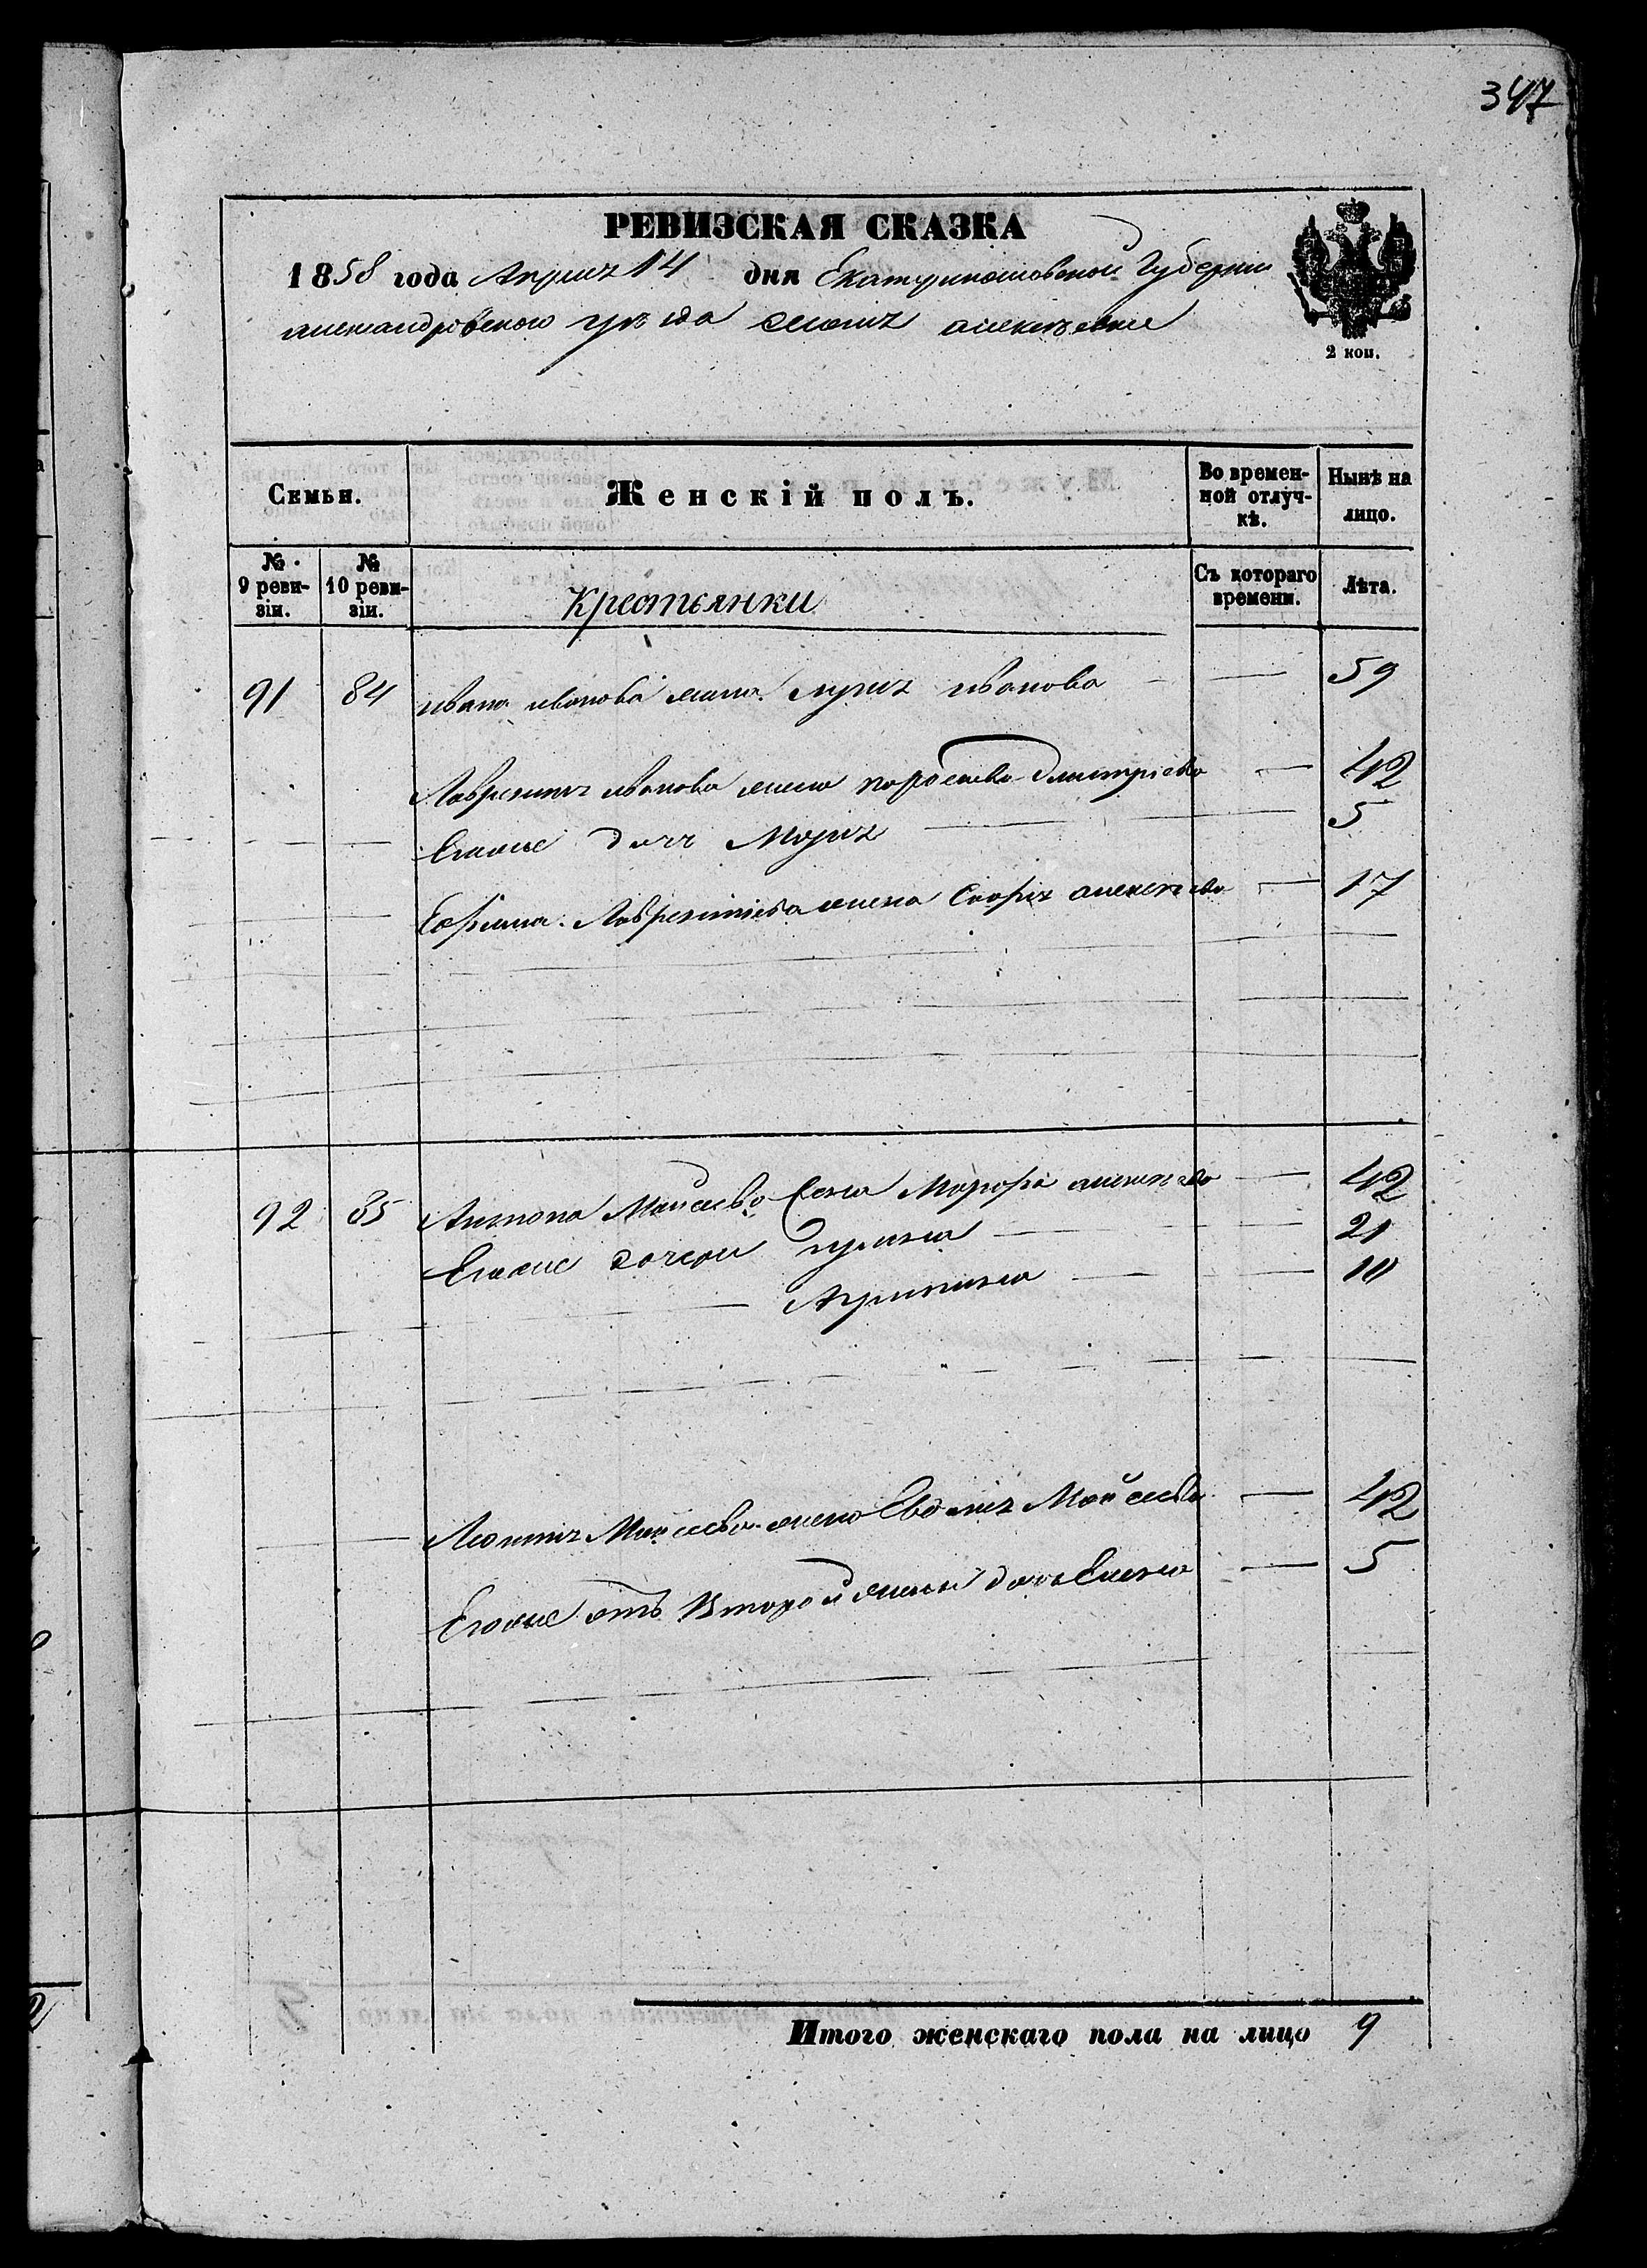 347
РЕВИЗСКАЯ СКАЗКА
1858 года Апреля 14 дня Екатеринославской Губернии
александровского уезда
2 коп.
Семьи.
Женскій полъ.
Во времен-
ной отлуч-
кѣ.
Нынѣ на
лицо.
№
9 реви-
зіи.
№
10 реви-
зіи.
Крестьянки
Съ котораго
времени.
Лѣта.
91 84 ивана иванова жена иванова 59
Лаврентия иванова жена дмитриева 42
Его же дочь Мария 5
Ефима Лаврентиева жена Софья алексеева 17
92 85 Антона Мойсеева жена Марфа алексеева 42
Его же дочери 21
Агрипина 10
Мойсеева жена Мойсеева 42
Его же отъ Второй жены дочь Елена 5
Итого женскаго пола на лицо 9